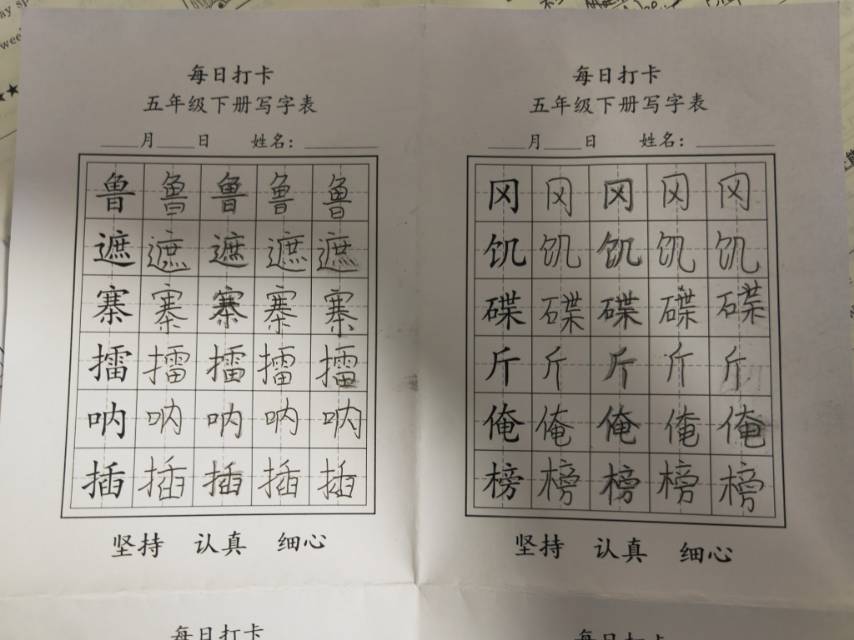 每日打卡
五年级下册写字表
____月____日 姓名：________
鲁鲁鲁鲁鲁
遮遮遮遮遮
寨寨寨寨寨
擂擂擂擂擂
呐呐呐呐呐
插插插插插
坚持 认真 细心
每日打卡
每日打卡
五年级下册写字表
____月____日 姓名：________
冈冈冈冈冈
饥饥饥饥饥
碟碟碟碟碟
斤斤斤斤斤
俺俺俺俺俺
榜榜榜榜榜
坚持 认真 细心
每日打卡